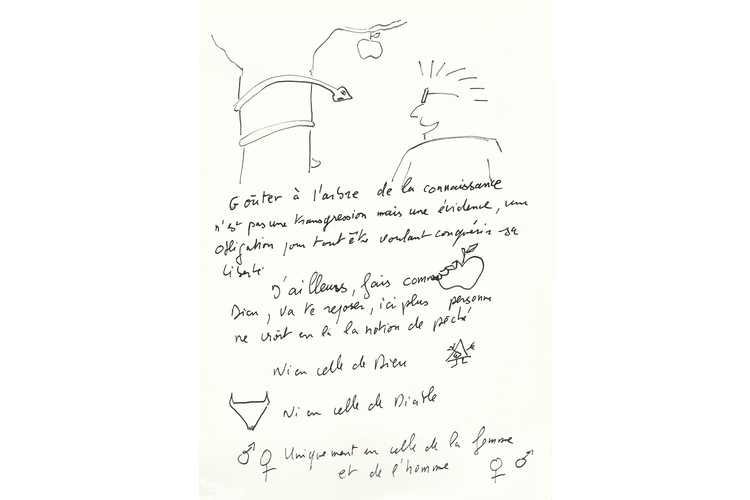 Goûter à l'arbre de la connaissance
n'est pas une transgression mais une évidence, une
obligation pour tout être voulant conquérir sa
liberté
D'ailleurs, fais comme
Dieu, va te reposer, ici plus personne
ne croit en là la notion de péché
Ni en celle de Dieu
Ni en celle de Diable
Uniquement en celle de la femme
et de l'homme